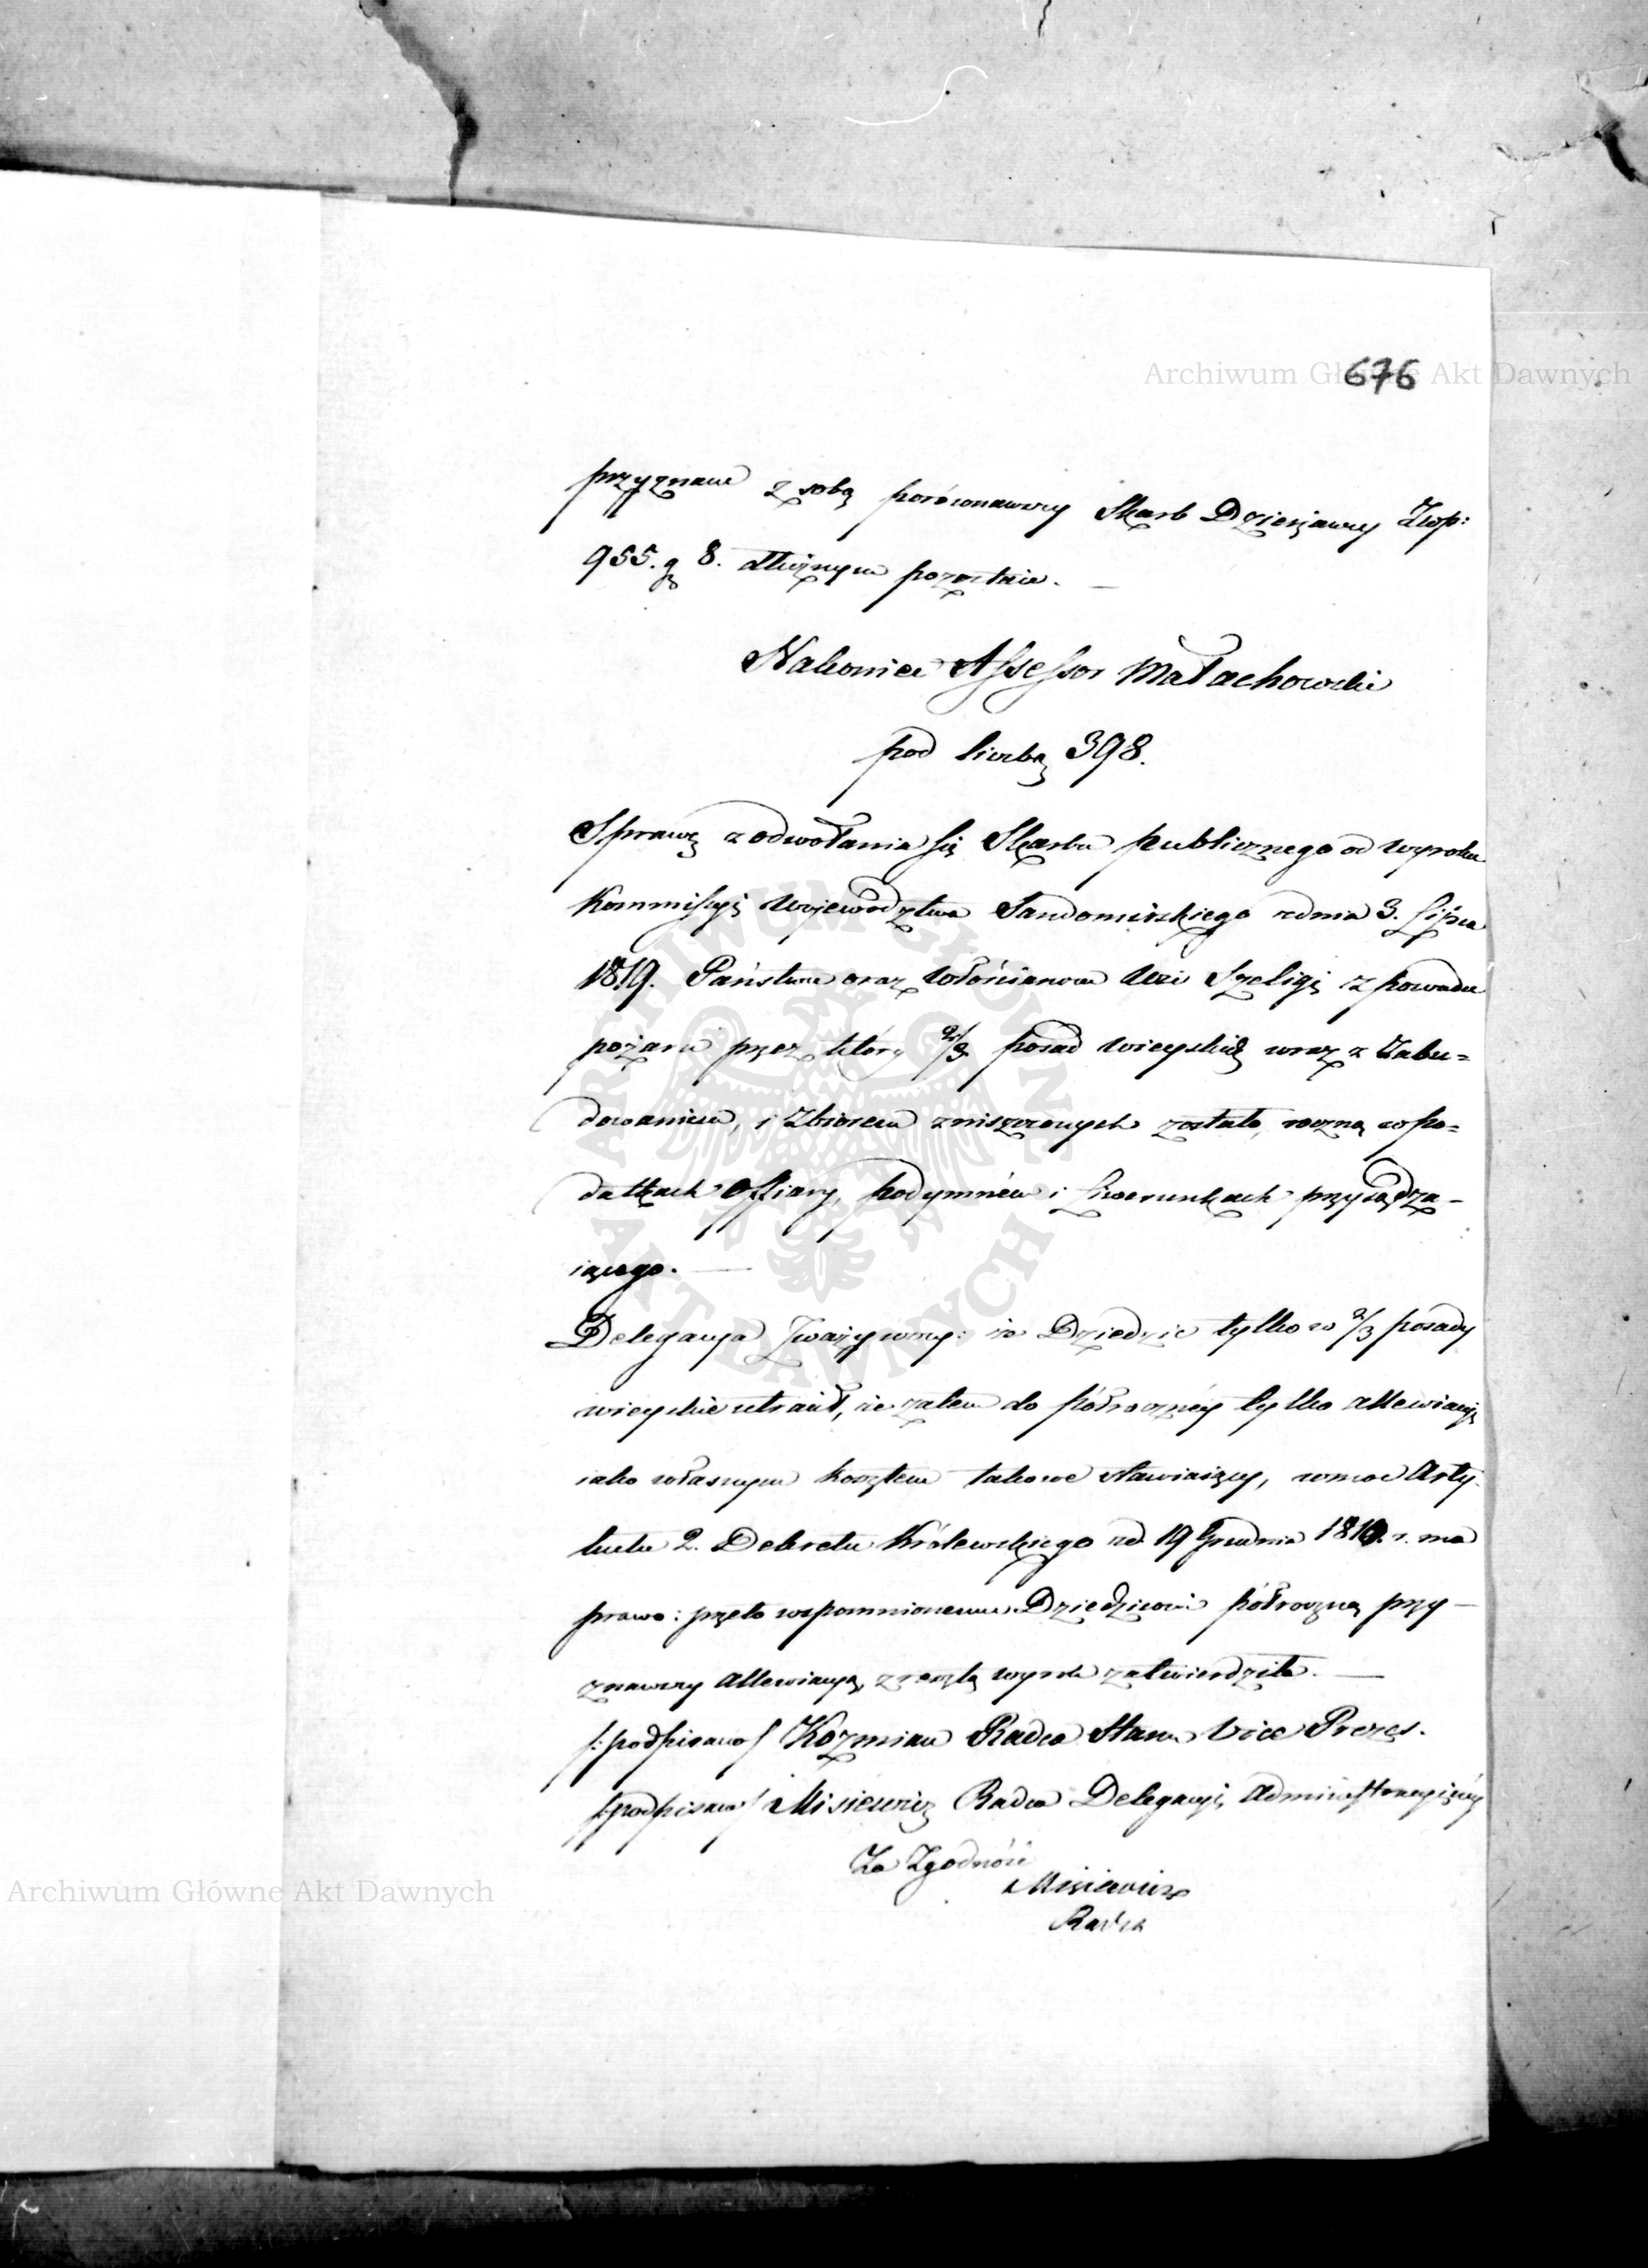 Archiwum Główne Akt Dawnych
676
przyznane z sobą porównawszy Skarb Dzierżawcy Złop:
955. g 8. dłużnym pozostaie. —
Nakoniec Assessor Małachowski
pod liczbą 398.
Sprawę z odwołania się Skarbu publicznego od wyroku
Kommissyi Województwa Sandomirskiego zdnia 3. Lipca
1819. Państwu oraz Włościanom Wsi Szeligi z powodu
pożaru przez który 2/3 posad wieyskich wraz z Zabu=
dowaniem, i Zbiorem zniszczonych zostało, roczną w po=
datkach Offiary, podymnem i Liwerunkach przysądza–
iącego. —
Delegacya Zważywszy: że Dziedzic tylko w 2/3 posady
wieyskie utracił, że zatem do półroczney tylko allewiacyi
iako własnym kosztem takowe stawiaiący, w moc Arty-
kułu 2. Dekretu Królewskiego zd. 19 Grudnia 1810. r. ma
prawo: przeto wspomnionemu Dziedzicowi półroczną przy—
znawszy allewiacyą, zresztą wyrok zatwierdziła. —
/:podpisano/ Koźmian Radca Stanu Vice Prezes.
/:podpisano/ Misiewicz Radca Delegacyi Administracyiney
Za Zgodność
Misiewicz
Radca
Archiwum Główne Akt Dawnych
ARCHIWUM GŁÓWNE AKT DAWNYCH